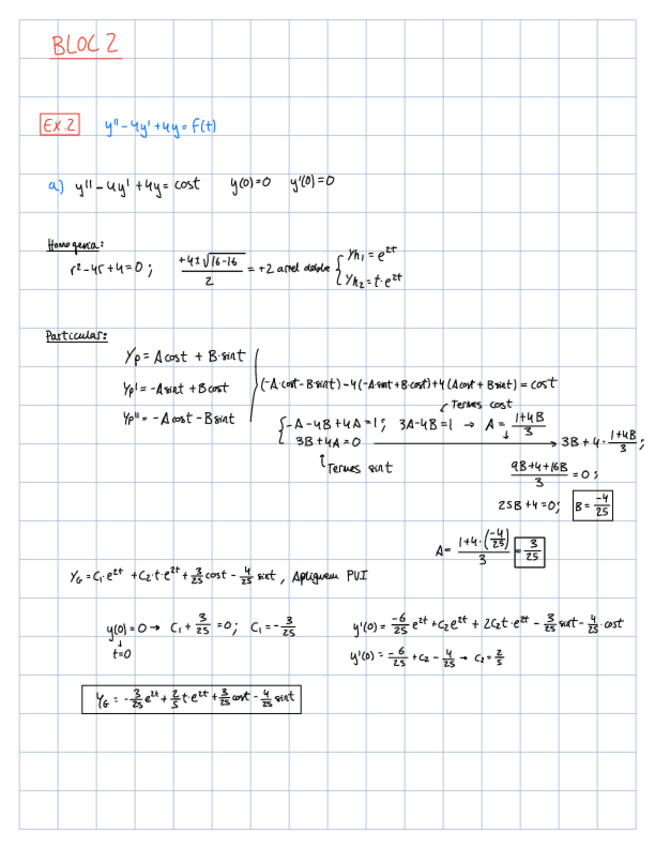 BLOC 2
Ex.2 y'' - 4y' + 4y = f(t)
a) y'' - 4y' + 4y = cost y(0)=0 y'(0)=0
Homogenea:
r² - 4r + 4 = 0 ; +4±√16-16 / 2 = +2 arrel doble { yh₁ = e^2t
yh₂ = t·e^2t
Particular:
Yp = Acost + B·sint
Yp' = -Asint + Bcost
Yp'' = -Acost - Bsint
(-A·cost - Bsint) - 4(-A·sint + B·cost) + 4(Acost + Bsint) = cost
Termes cost
{ -A - 4B + 4A = 1 ; 3A - 4B = 1 → A = 1+4B / 3
3B + 4A = 0 → 3B + 4 · 1+4B / 3 ;
Termes sint
9B + 4 + 16B / 3 = 0 ;
25B + 4 = 0 ; B = -4/25
A = 1+4·(-4/25) / 3 = 3/25
YG = C₁·e^2t + C₂·t·e^2t + 3/25 cost - 4/25 sint , Apliquem PVI
y(0) = 0 → C₁ + 3/25 = 0 ; C₁ = -3/25
↓
t=0
y'(0) = -6/25 e^2t + C₂e^2t + 2C₂t·e^2t - 3/25 sint - 4/25 · cost
y'(0) = -6/25 + C₂ - 4/25 → C₂ = 2/5
YG = -3/25 e^2t + 2/5 t·e^2t + 3/25 cost - 4/25 sint